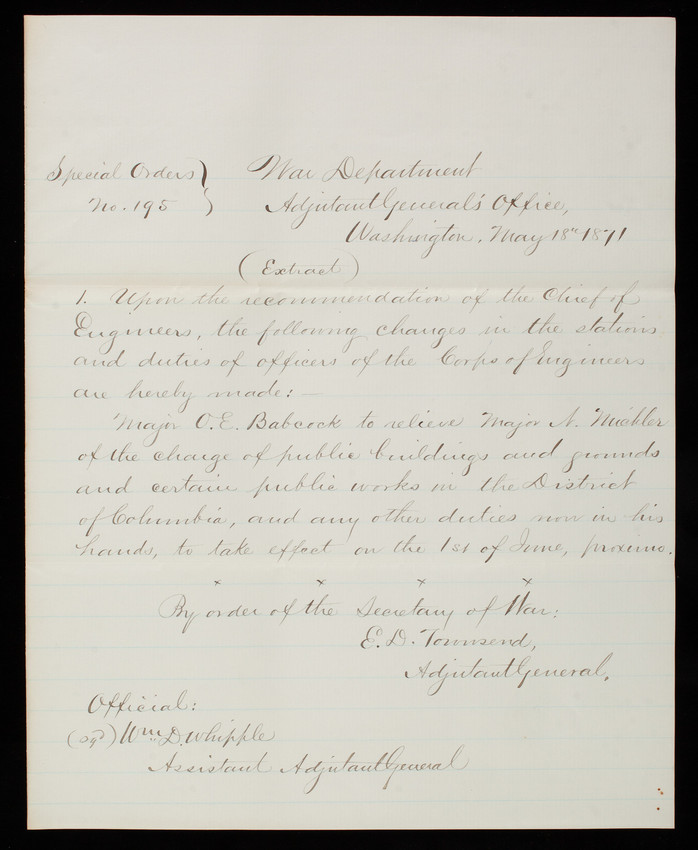 Special Orders } War Department
No. 195 Adjutant General's Office,
Washington, May 18th 1871
(Extract)
1. Upon the recommendation of the Chief of
Engineers, the following changes in the stations
and duties of officers of the Corps of Engineers
are hereby made:—
Major O. E. Babcock to relieve Major N. Michler
of the charge of public buildings and grounds
and certain public works in the District
of Columbia, and any other duties now in his
hands, to take effect on the 1st of June, proximo.
x x x x
By order of the Secretary of War:
E. D. Townsend,
Adjutant General.
Official:
(sgd) Wm D. Whipple
Assistant Adjutant General